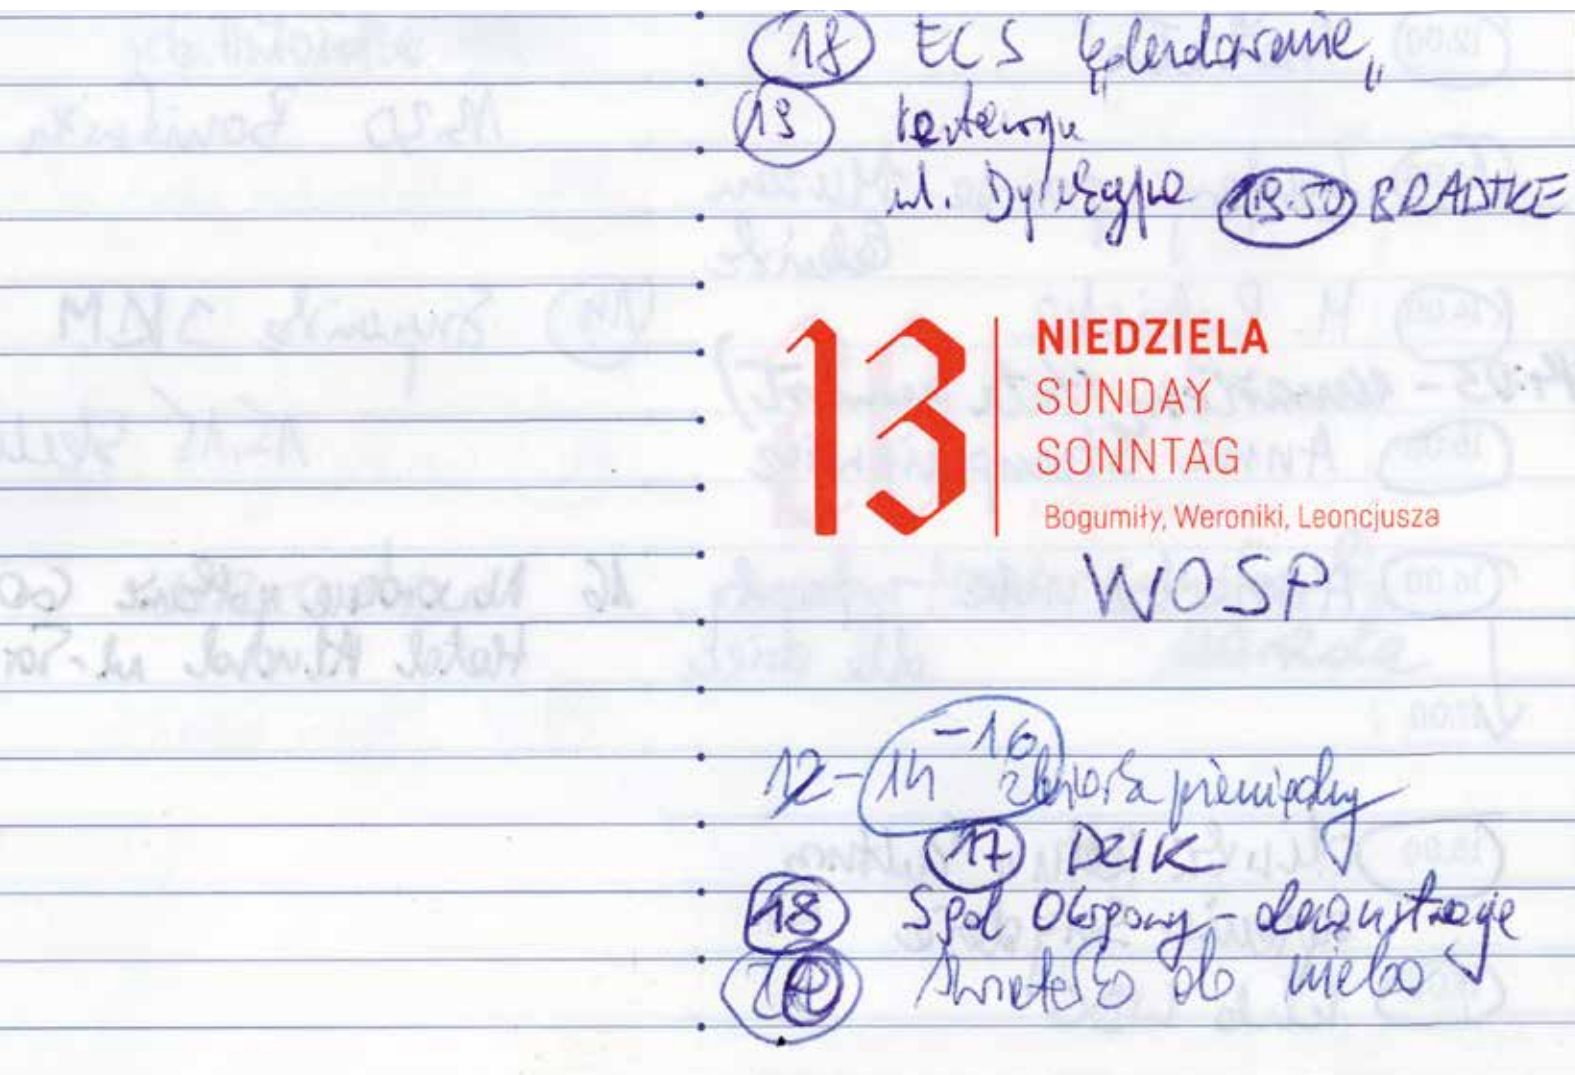 18 ECS „kolędowanie”
19
ul. 19.50 BRADTKE
13
NIEDZIELA
SUNDAY
SONNTAG
Bogumiły, Weroniki, Leoncjusza
WOSP
12-14-16 zbiórka pieniędzy
17 DZIK
18 Sąd Okręgowy - demonstracje
20 Światełko do nieba